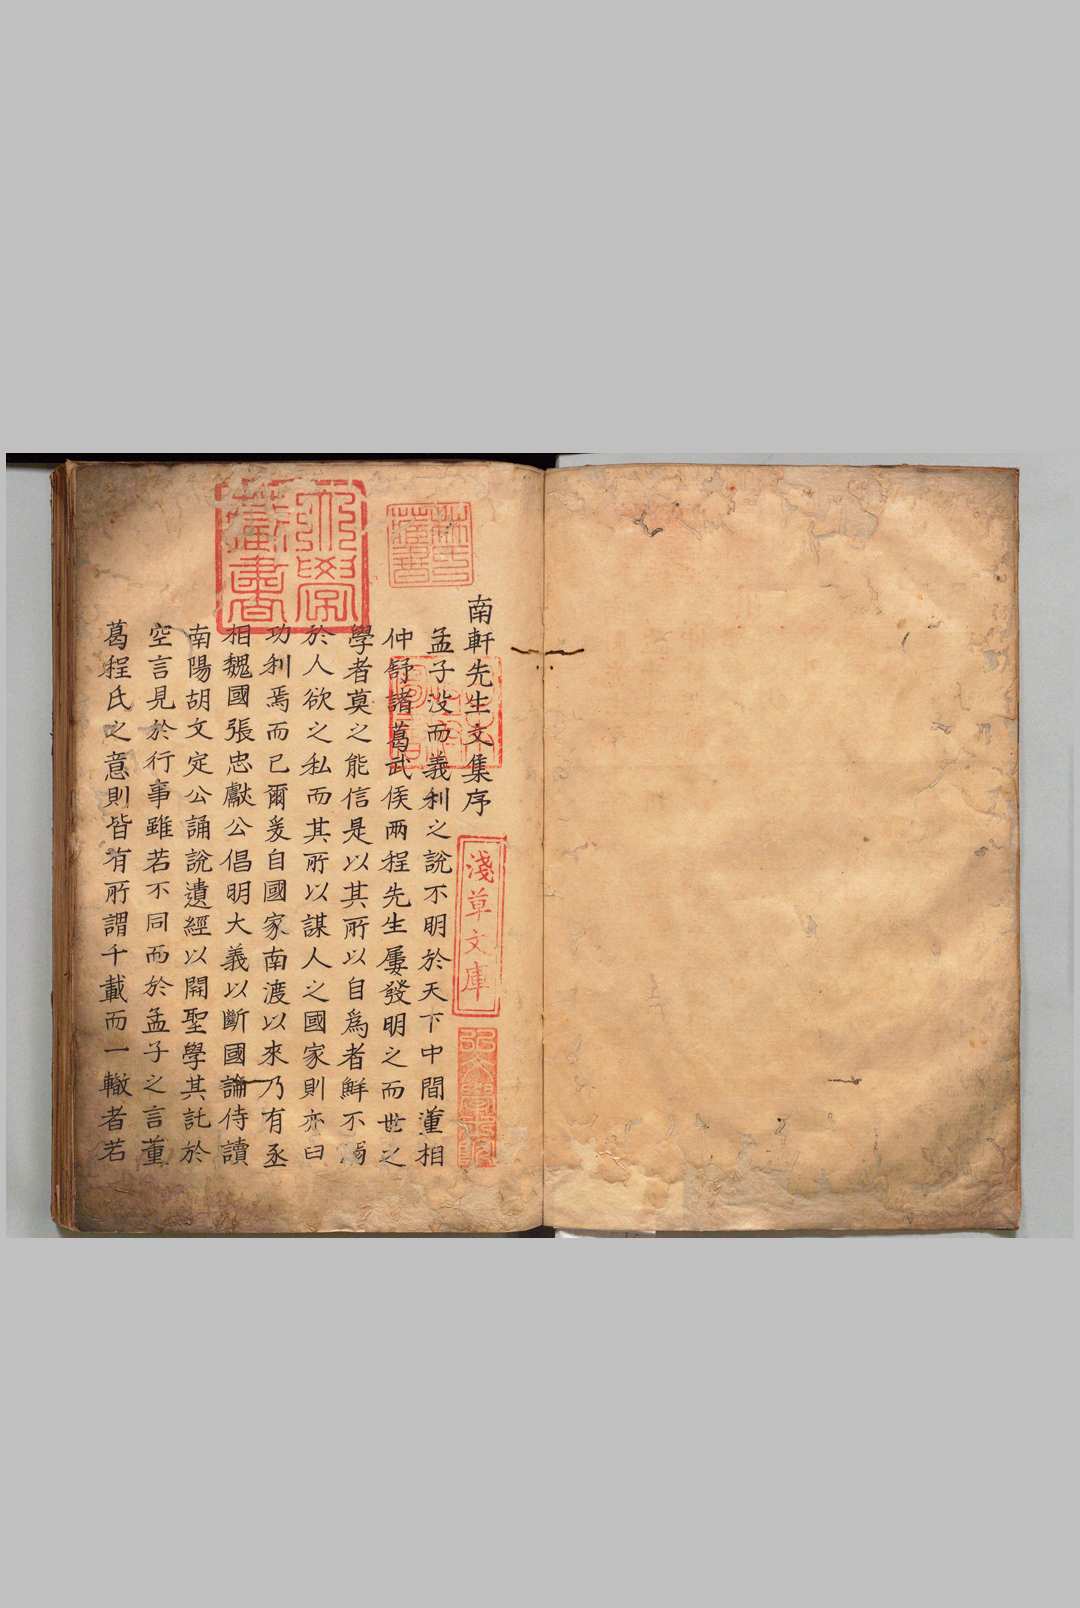 南軒先生文集序
孟子没而義利之說不明於天下中間董相
仲舒諸葛武侯兩程先生屢發明之而世之
學者莫之能信是以其所以自爲者鮮不溺
於人欲之私而其所以謀人之國家則亦曰
功利焉而已爾爰自國家南渡以來乃有丞
相魏國張忠獻公倡明大義以斷國論侍讀
南陽胡文定公誦說遺經以開聖學其託於
空言見於行事雖若不同而於孟子之言董
葛程氏之意則皆有所謂千載而一轍者若
淺草文庫
林氏藏書
大學藏書
弘文學士院